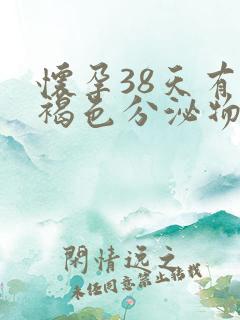 懷孕38天有
褐色分泌物
閑情逸之
未经同意禁止转载